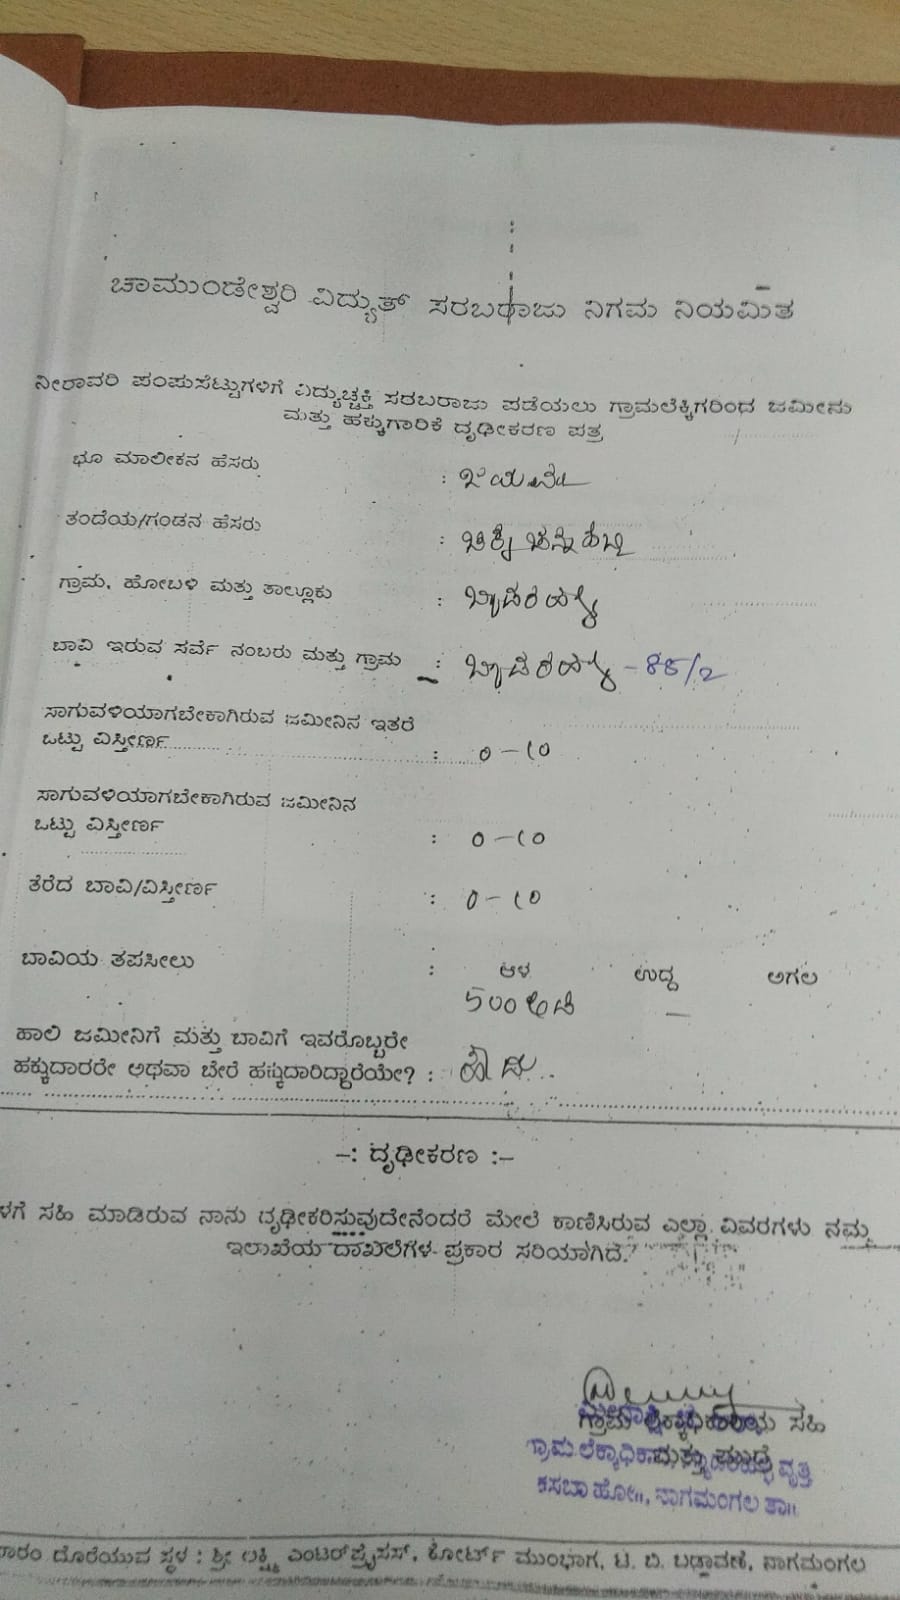 ಚಾಮುಂಡೇಶ್ವರಿ ವಿದ್ಯುತ್ ಸರಬರಾಜು ನಿಗಮ ನಿಯಮಿತ
ನೀರಾವರಿ ಪಂಪುಸೆಟ್ಟುಗಳಿಗೆ ವಿದ್ಯುಚ್ಛಕ್ತಿ ಸರಬರಾಜು ಪಡೆಯಲು ಗ್ರಾಮಲೆಕ್ಕಿಗರಿಂದ ಜಮೀನು
ಮತ್ತು ಹಕ್ಕುಗಾರಿಕೆ ದೃಢೀಕರಣ ಪತ್ರ
ಭೂ ಮಾಲೀಕನ ಹೆಸರು :
ತಂದೆಯ/ಗಂಡನ ಹೆಸರು :
ಗ್ರಾಮ, ಹೋಬಳಿ ಮತ್ತು ತಾಲ್ಲೂಕು :
ಬಾವಿ ಇರುವ ಸರ್ವೆ ನಂಬರು ಮತ್ತು ಗ್ರಾಮ : - 88/2
ಸಾಗುವಳಿಯಾಗಬೇಕಾಗಿರುವ ಜಮೀನಿನ ಇತರೆ
ಒಟ್ಟು ವಿಸ್ತೀರ್ಣ : 0-10
ಸಾಗುವಳಿಯಾಗಬೇಕಾಗಿರುವ ಜಮೀನಿನ
ಒಟ್ಟು ವಿಸ್ತೀರ್ಣ : 0-10
ತೆರೆದ ಬಾವಿ/ವಿಸ್ತೀರ್ಣ : 0-10
ಬಾವಿಯ ತಪಸೀಲು : ಆಳ ಉದ್ದ ಅಗಲ
500 ಅಡಿ —
ಹಾಲಿ ಜಮೀನಿಗೆ ಮತ್ತು ಬಾವಿಗೆ ಇವರೊಬ್ಬರೇ
ಹಕ್ಕುದಾರರೇ ಅಥವಾ ಬೇರೆ ಹಕ್ಕುದಾರಿದ್ದಾರೆಯೇ? : ಹೌದು
-: ದೃಢೀಕರಣ :-
ಳಗೆ ಸಹಿ ಮಾಡಿರುವ ನಾನು ದೃಢೀಕರಿಸುವುದೇನೆಂದರೆ ಮೇಲೆ ಕಾಣಿಸಿರುವ ಎಲ್ಲಾ ವಿವರಗಳು ನಮ್ಮ
ಇಲಾಖೆಯ ದಾಖಲೆಗಳ ಪ್ರಕಾರ ಸರಿಯಾಗಿದೆ.
ಗ್ರಾಮ ಲೆಕ್ಕಾಧಿಕಾರಿಯ ಸಹಿ
ಮತ್ತು ಮುದ್ರೆ
ಗ್ರಾಮ ಲೆಕ್ಕಾಧಿಕಾ ವೃತ್ತ
ಕಸಬಾ ಹೋ॥, ನಾಗಮಂಗಲ ತಾ॥
ಾರಂ ದೊರೆಯುವ ಸ್ಥಳ : ಶ್ರೀ ಲಕ್ಷ್ಮಿ ಎಂಟರ್‌ಪ್ರೈಸಸ್, ಕೋರ್ಟ್ ಮುಂಭಾಗ, ಟಿ. ಬಿ. ಬಡಾವಣೆ, ನಾಗಮಂಗಲ